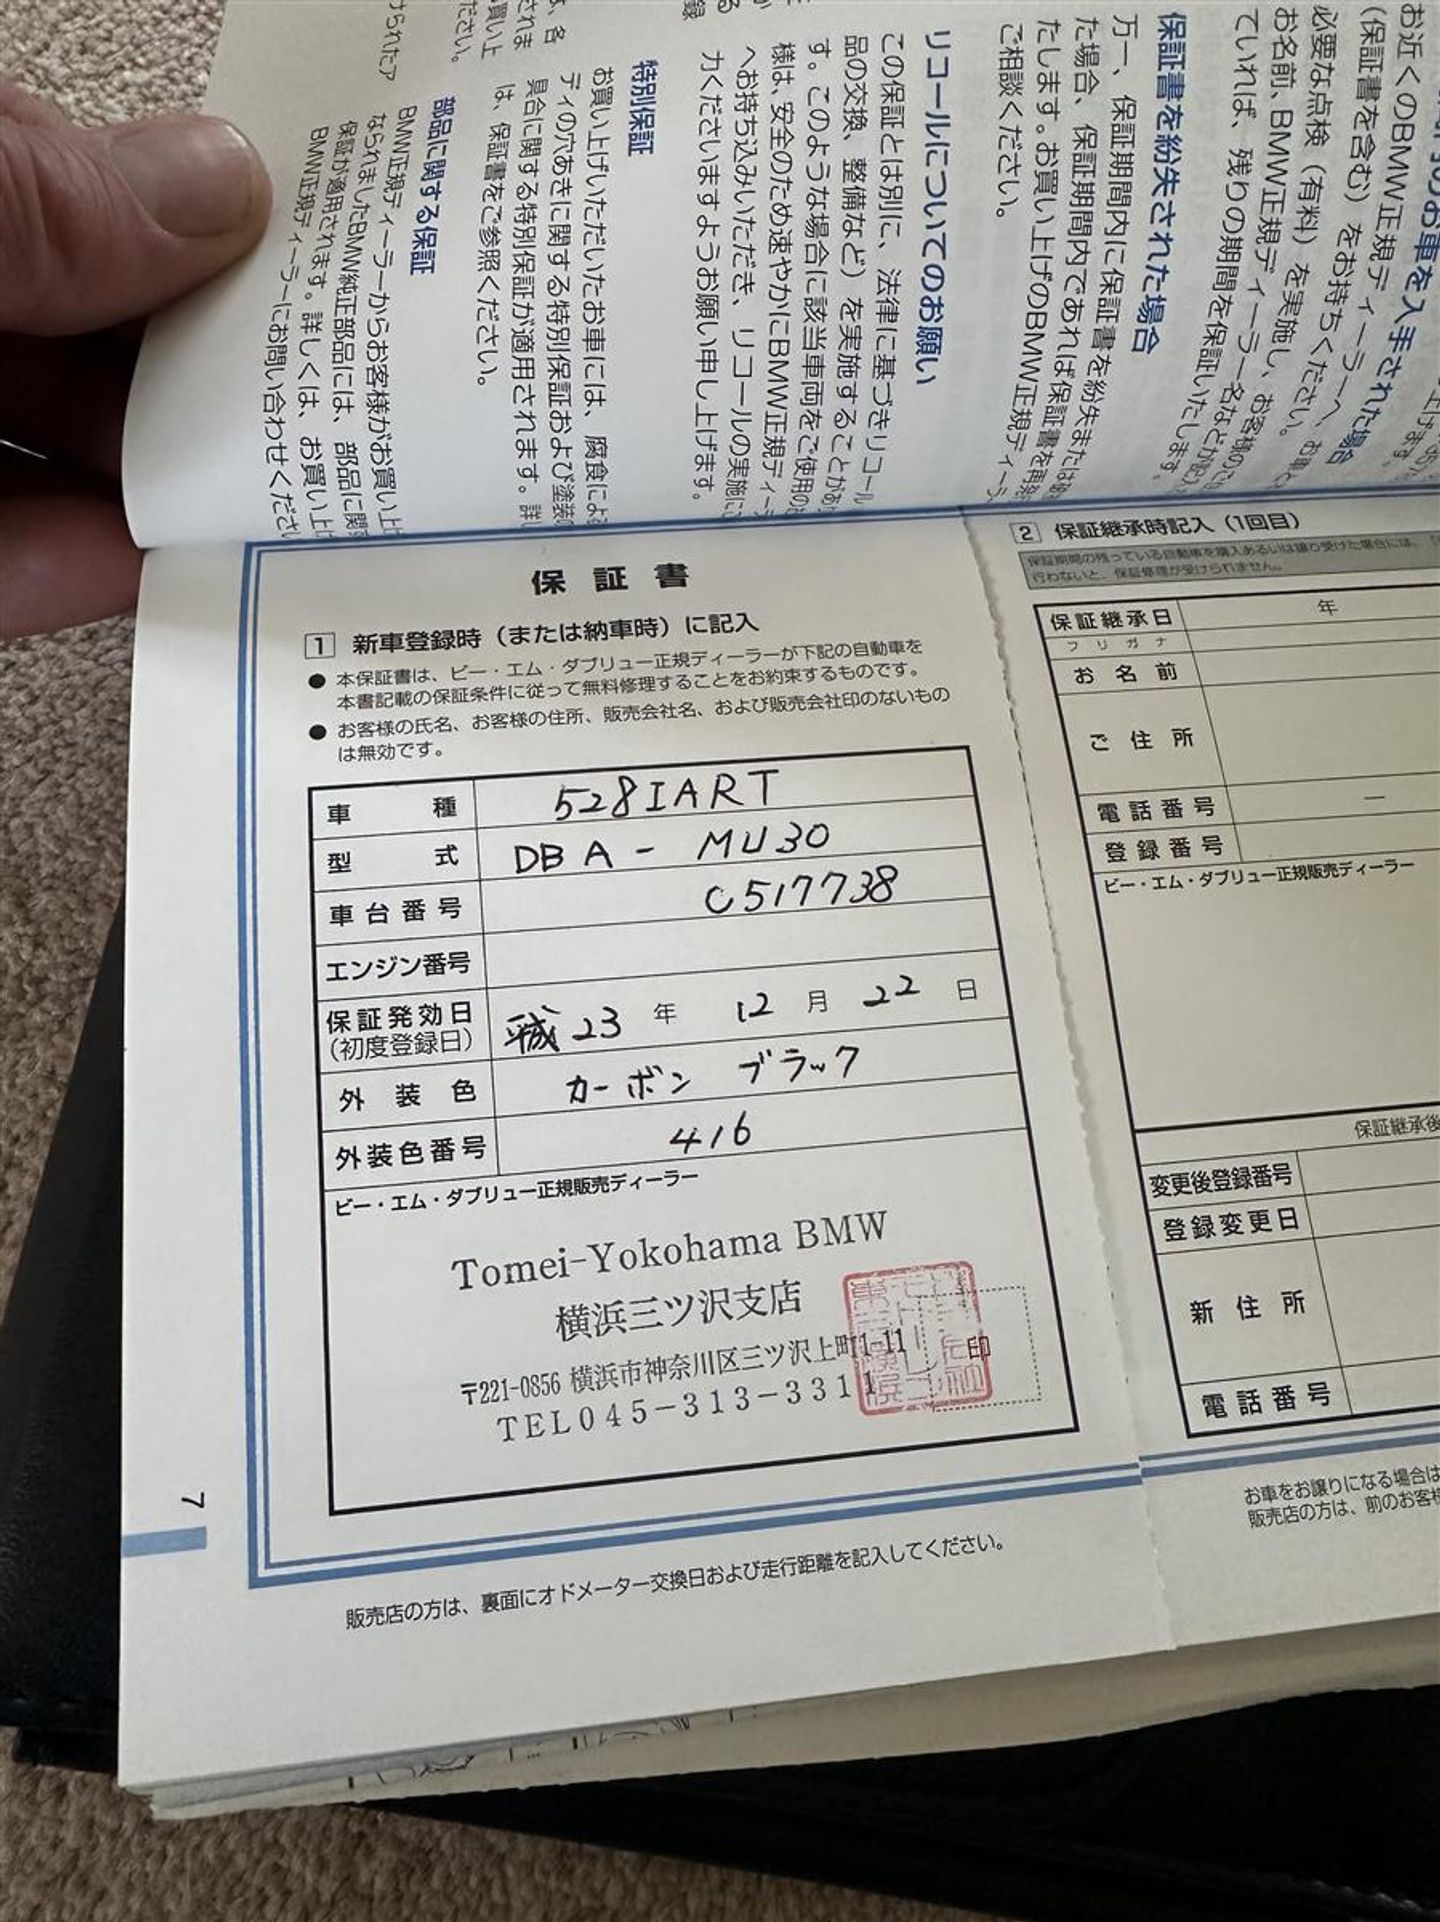 お近くのBMW正規ディーラーへ、お車と
(保証書を含む)をお持ちください。
必要な点検(有料)を実施し、お客様の
お名前、BMW正規ディーラー名などが記入
ていれば、残りの期間を保証いたします。
保証書を紛失された場合
万一、保証期間内に保証書を紛失または
た場合、保証期間内であれば保証書を再発
たします。お買い上げのBMW正規ディーラ
ご相談ください。
リコールについてのお願い
この保証とは別に、法律に基づきリコール
品の交換、整備など)を実施することがあり
す。このような場合に該当車両をご使用のお
様は、安全のため速やかにBMW正規ディー
へお持ち込みいただき、リコールの実施にご
力くださいますようお願い申し上げます。
特別保証
お買い上げいただいたお車には、腐食による
ディの穴あきに関する特別保証および塗装の
具合に関する特別保証が適用されます。詳し
は、保証書をご参照ください。
部品に関する保証
BMW正規ディーラーからお客様がお買い上げ
なられましたBMW純正部品には、部品に関す
保証が適用されます。詳しくは、お買い上げ
BMW正規ディーラーにお問い合わせください
保証書
1 新車登録時(または納車時)に記入
● 本保証書は、ビー・エム・ダブリュー正規ディーラーが下記の自動車を
本書記載の保証条件に従って無料修理することをお約束するものです。
● お客様の氏名、お客様の住所、販売会社名、および販売会社印のないもの
は無効です。
車種 528IART
型式 DBA- MU30
車台番号 C517738
エンジン番号
保証発効日 平成23年 12月 22日
(初度登録日)
外装色 カーボン ブラック
外装色番号 416
ビー・エム・ダブリュー正規販売ディーラー
Tomei-Yokohama BMW
横浜三ツ沢支店
〒221-0856 横浜市神奈川区三ツ沢上町1-11
TEL045-313-3311
印
販売店の方は、裏面にオドメーター交換日および走行距離を記入してください。
7
2 保証継承時記入(1回目)
保証期間の残っている自動車を購入あるいは譲り受けた場合には、
行わないと、保証修理が受けられません。
保証継承日 年
フリガナ
お名前
ご住所
電話番号 ―
登録番号
ビー・エム・ダブリュー正規販売ディーラー
保証継承後
変更後登録番号
登録変更日
新住所
電話番号
お車をお譲りになる場合は
販売店の方は、前のお客様